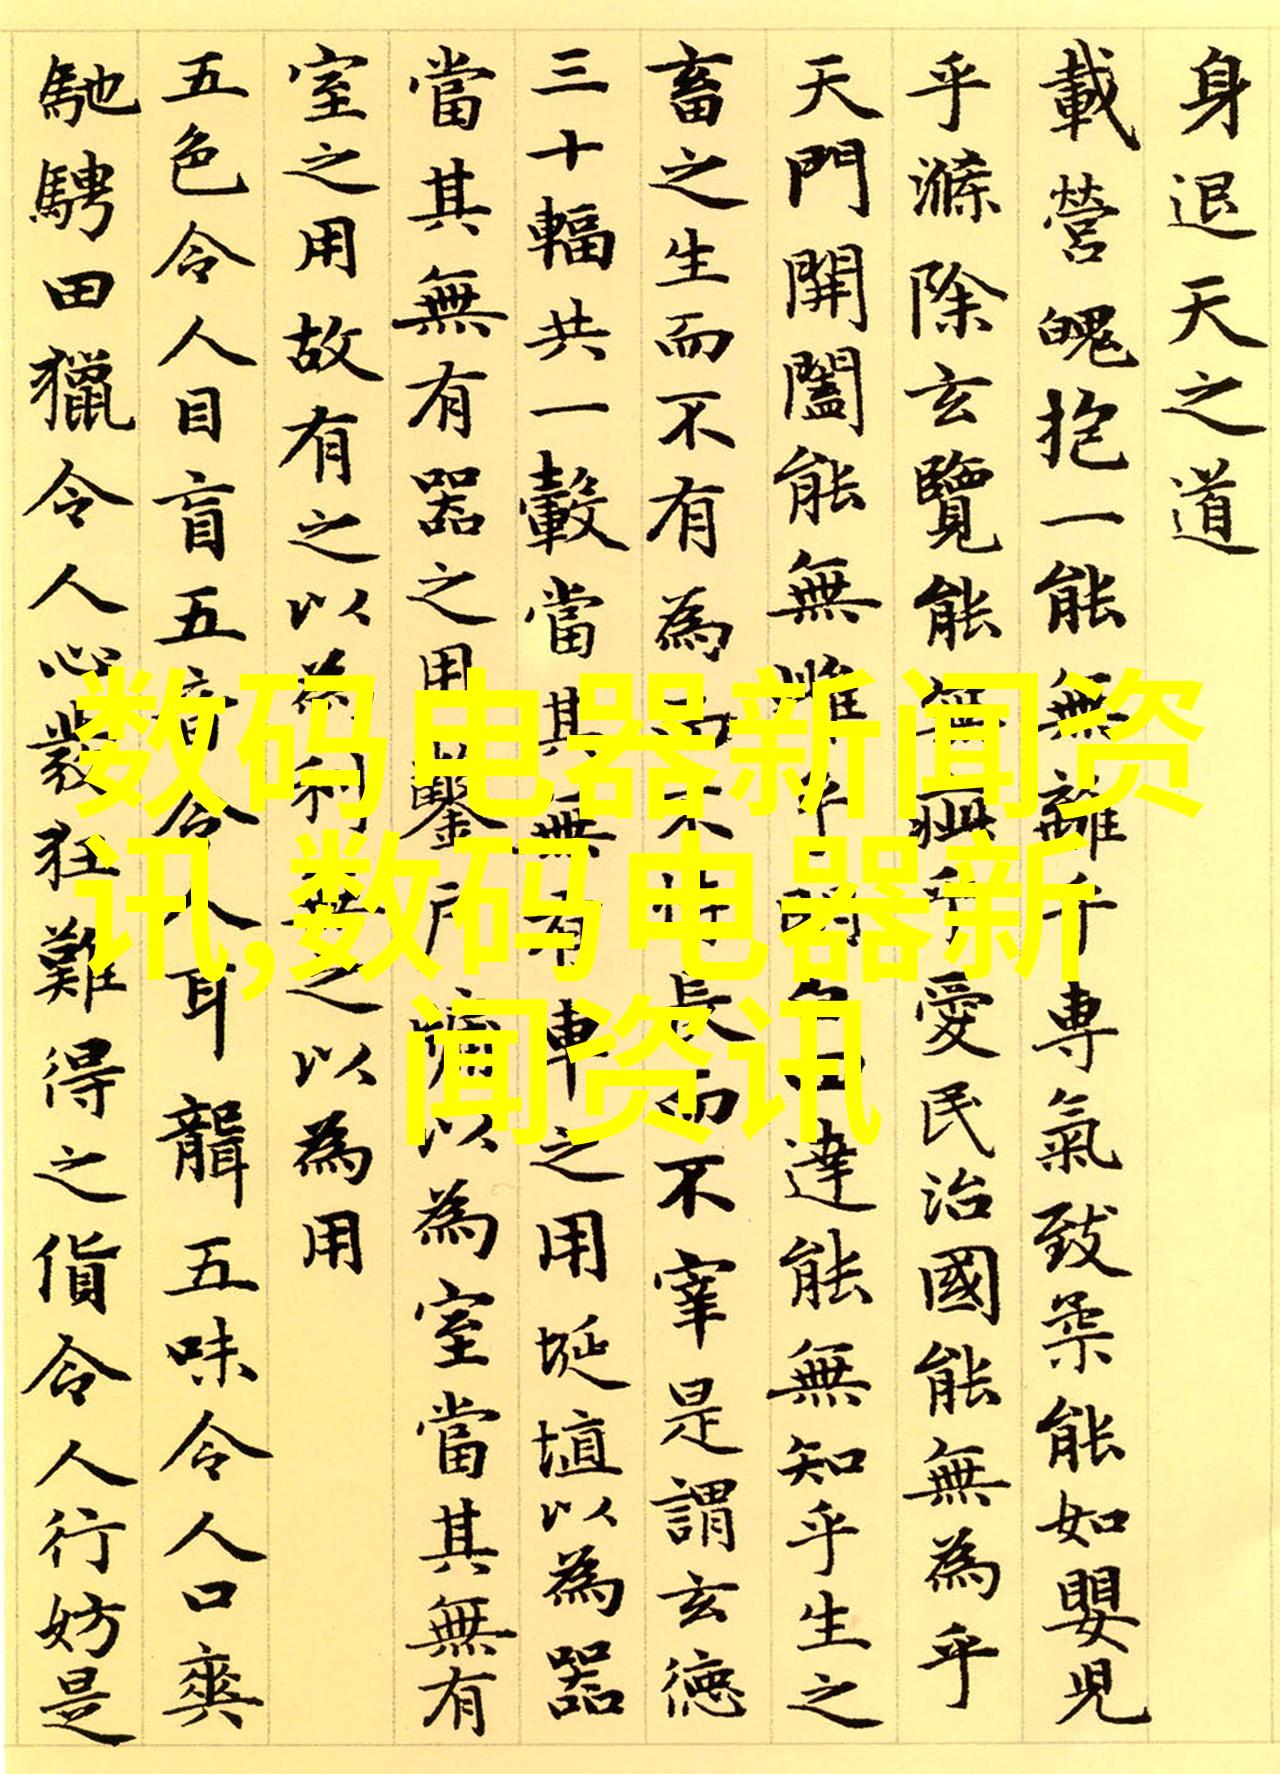 身退天之道
載營魄抱一能無離乎專氣致柔能如嬰兒
乎滌除玄覽能無疵乎愛民治國能無為乎
天門開闔能無雌乎明白四達能無知乎生之
畜之生而不有為而不恃長而不宰是謂玄德
三十輻共一轂當其無有車之用埏埴以為器
當其無有器之用鑿戶牖以為室當其無有
室之用故有之以為利無之以為用
五色令人目盲五音令人耳聾五味令人口爽
馳騁田獵令人心發狂難得之貨令人行妨是
数码电器新闻资
讯,数码电器新
闻资讯